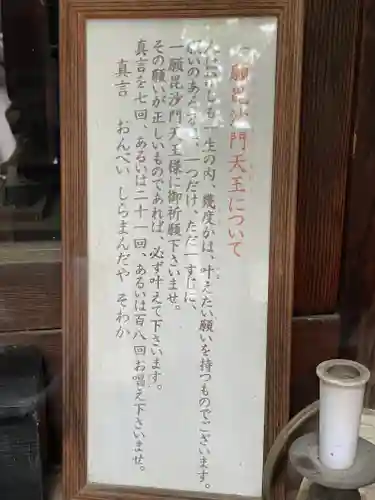 一願毘沙門天王について
人は誰しも一生の内、幾度かは、叶えたい願いを持つものでございます。
願いのある方は、一つだけ、ただ一すじに、
一願毘沙門天王様に御祈願下さいませ。
その願いが正しいものであれば、必ず叶えて下さいます。
真言を七回、あるいは二十一回、あるいは百八回お唱え下さいませ。
真言　おんべい　しらまんだや　そわか